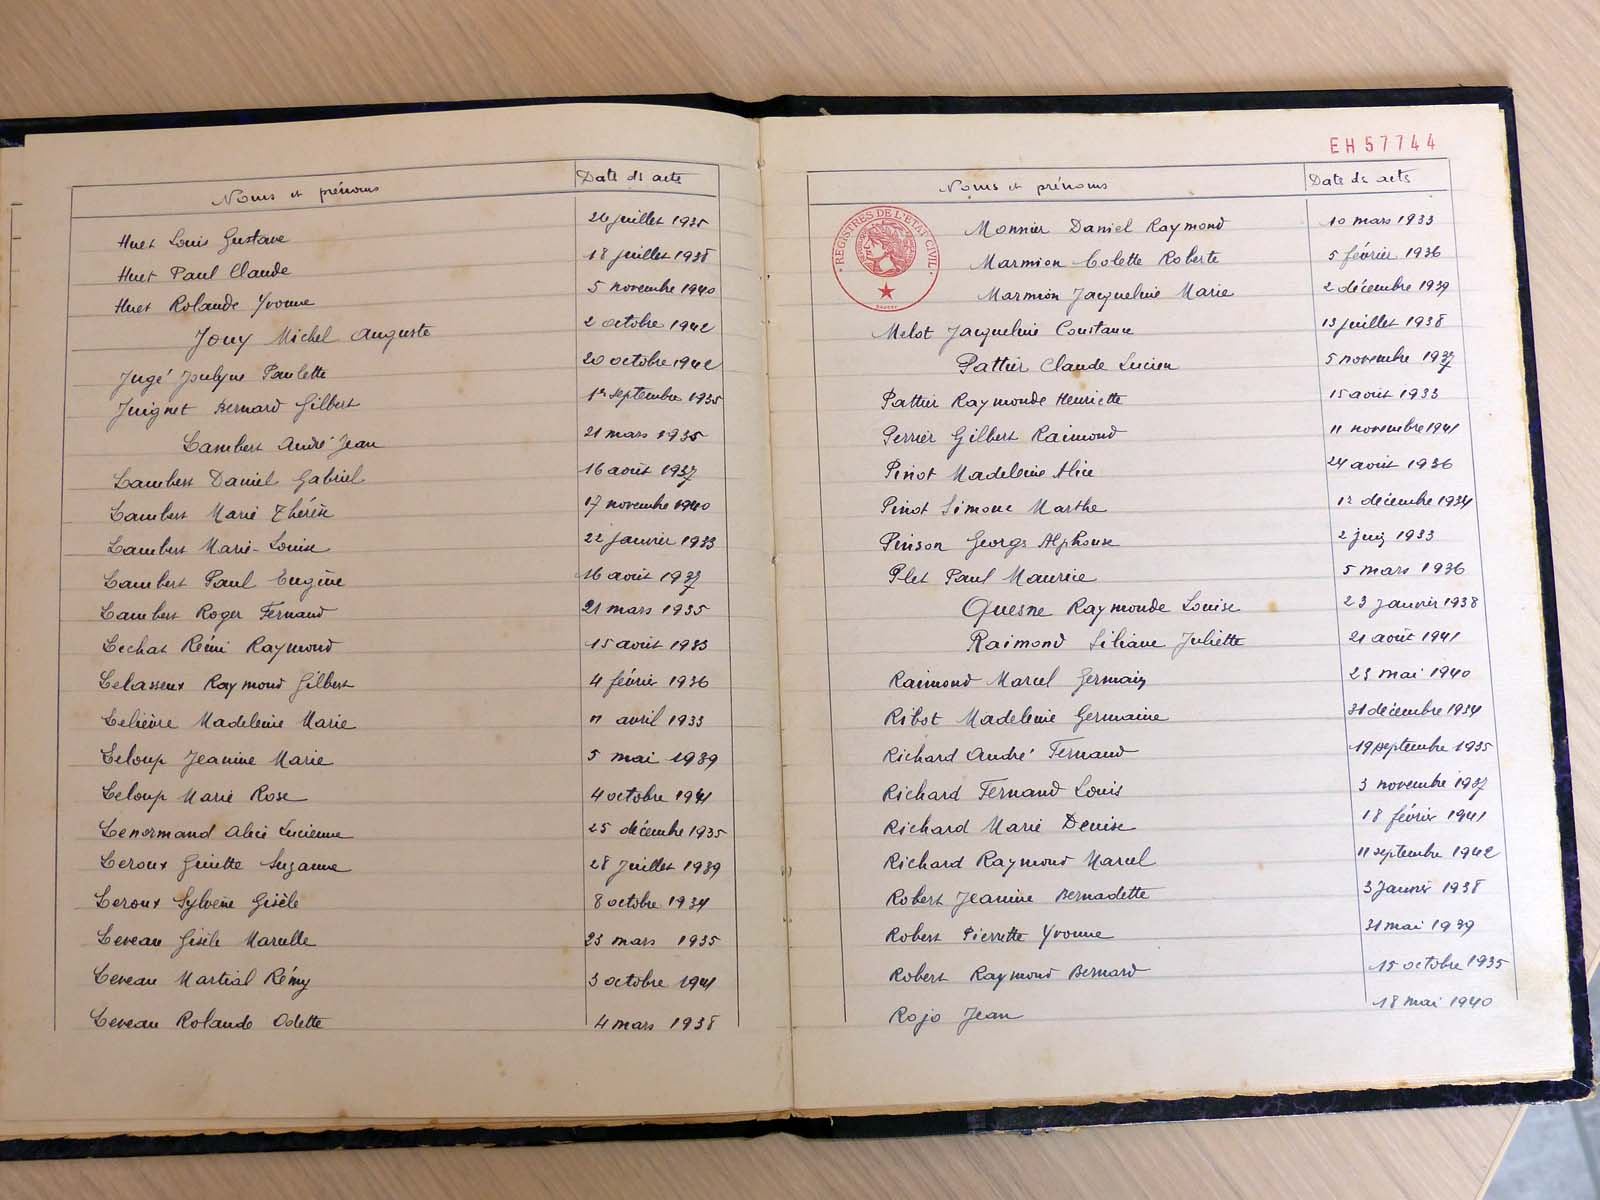 Noms et prénoms Date des actes
Huet Louis Gustave 26 juillet 1935
Huet Paul Claude 18 juillet 1938
Huet Rolande Yvonne 5 novembre 1940
Jouy Michel Auguste 2 octobre 1942
Jugé Paulette 20 octobre 1942
Juignet Bernard Gilbert 1er septembre 1935
Lambert André Jean 21 mars 1935
Lambert Daniel Gabriel 16 août 1937
Lambert Marie Thérèse 17 novembre 1940
Lambert Marie-Louise 22 janvier 1933
Lambert Paul Eugène 16 août 1937
Lambert Roger Fernand 21 mars 1935
Lechat Rémi Raymond 15 août 1933
Lelasseux Raymond Gilbert 4 février 1936
Lelièvre Madeleine Marie 11 avril 1933
Leloup Jeanine Marie 5 mai 1939
Leloup Marie Rose 4 octobre 1941
Lenormand Alice Lucienne 25 décembre 1935
Leroux Ginette Suzanne 28 juillet 1939
Leroux Sylvère Gisèle 8 octobre 1934
Leveau Gisèle Marcelle 23 mars 1935
Leveau Martial Rémy 3 octobre 1941
Leveau Rolande Odette 4 mars 1938
EH57744
Noms et prénoms Date des actes
REGISTRES DE L'ETAT CIVIL
Monnier Daniel Raymond 10 mars 1933
Marmion Colette Roberte 5 février 1936
Marmion Jacqueline Marie 2 décembre 1939
Melot Jacqueline Constance 13 juillet 1938
Pattier Claude Lucien 5 novembre 1937
Pattier Raymonde Henriette 15 août 1933
Perrier Gilbert Raimond 11 novembre 1941
Pinot Madeleine Alice 24 août 1936
Pinot Simone Marthe 12 décembre 1934
Pinson Georges Alphonse 2 juin 1933
Plet Paul Maurice 5 mars 1936
Quesne Raymonde Louise 23 janvier 1938
Raimond Liliane Juliette 21 août 1941
Raimond Marcel Germain 23 mai 1940
Ribot Madeleine Germaine 31 décembre 1934
Richard André Fernand 19 septembre 1935
Richard Fernand Louis 3 novembre 1937
Richard Marie Denise 18 février 1941
Richard Raymond Marcel 11 septembre 1942
Robert Jeanine Bernadette 3 janvier 1938
Robert Pierrette Yvonne 31 mai 1939
Robert Raymond Bernard 15 octobre 1935
Rojo Jean 18 mai 1940